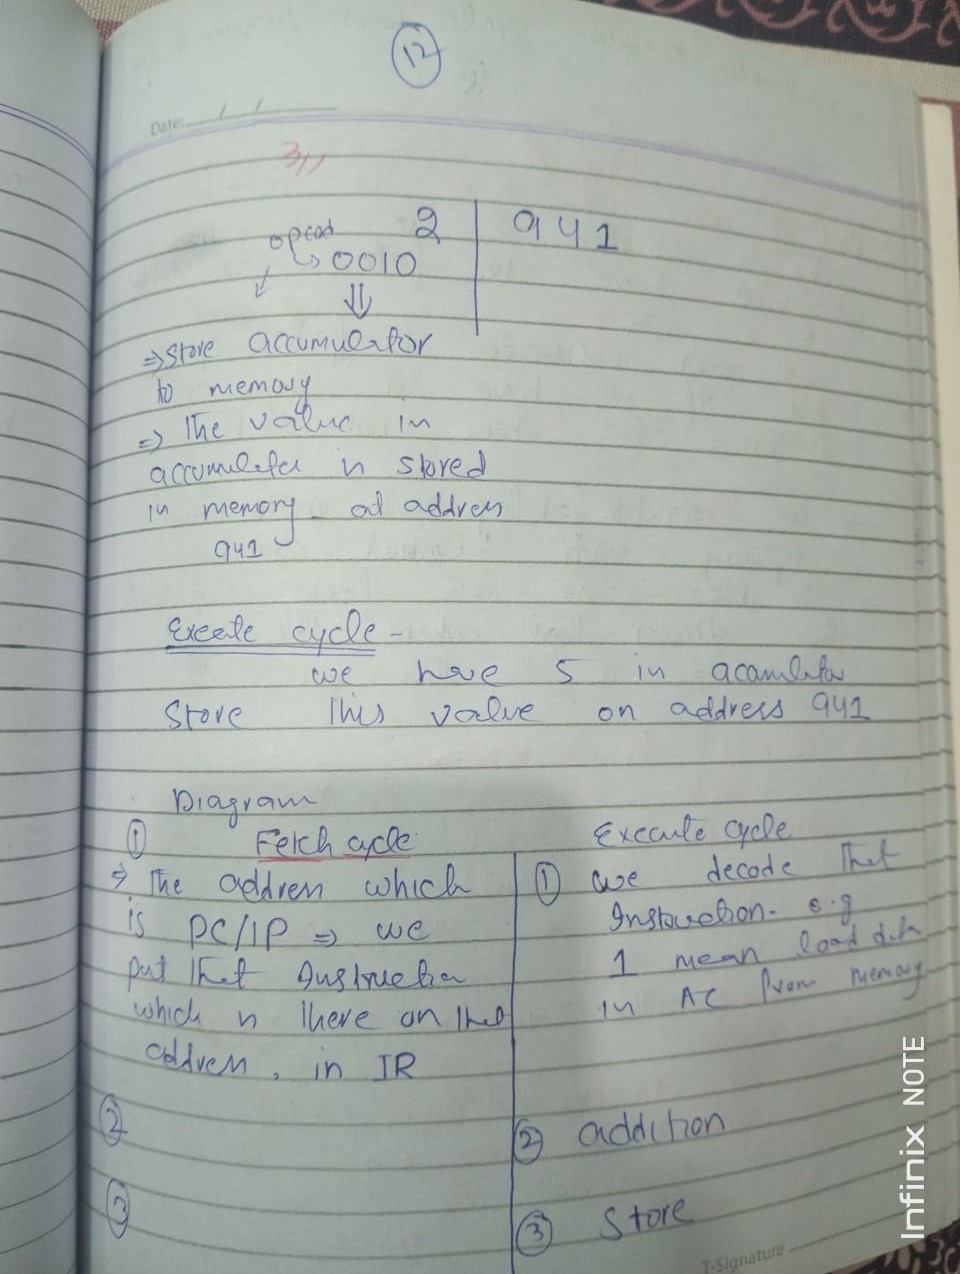 12
Date:
3//
2 | 941
opcod
↳ 0010
⇓
⇒ Store accumulator
to memory
⇒ The value in
accumulater is stored
in memory at address
941
Exeate cycle -
we have 5 in acamlator
Store this value on address 941
Diagram
① Fetch cycle
⇒ The address which
is PC/IP ⇒ we
put that Instruction
which is there on that
address, in IR
②
③
Execute cycle
① we decode that
Instruction. e.g
1 mean load data
in AC from memory
② addition
③ Store
T-Signature
Infinix NOTE